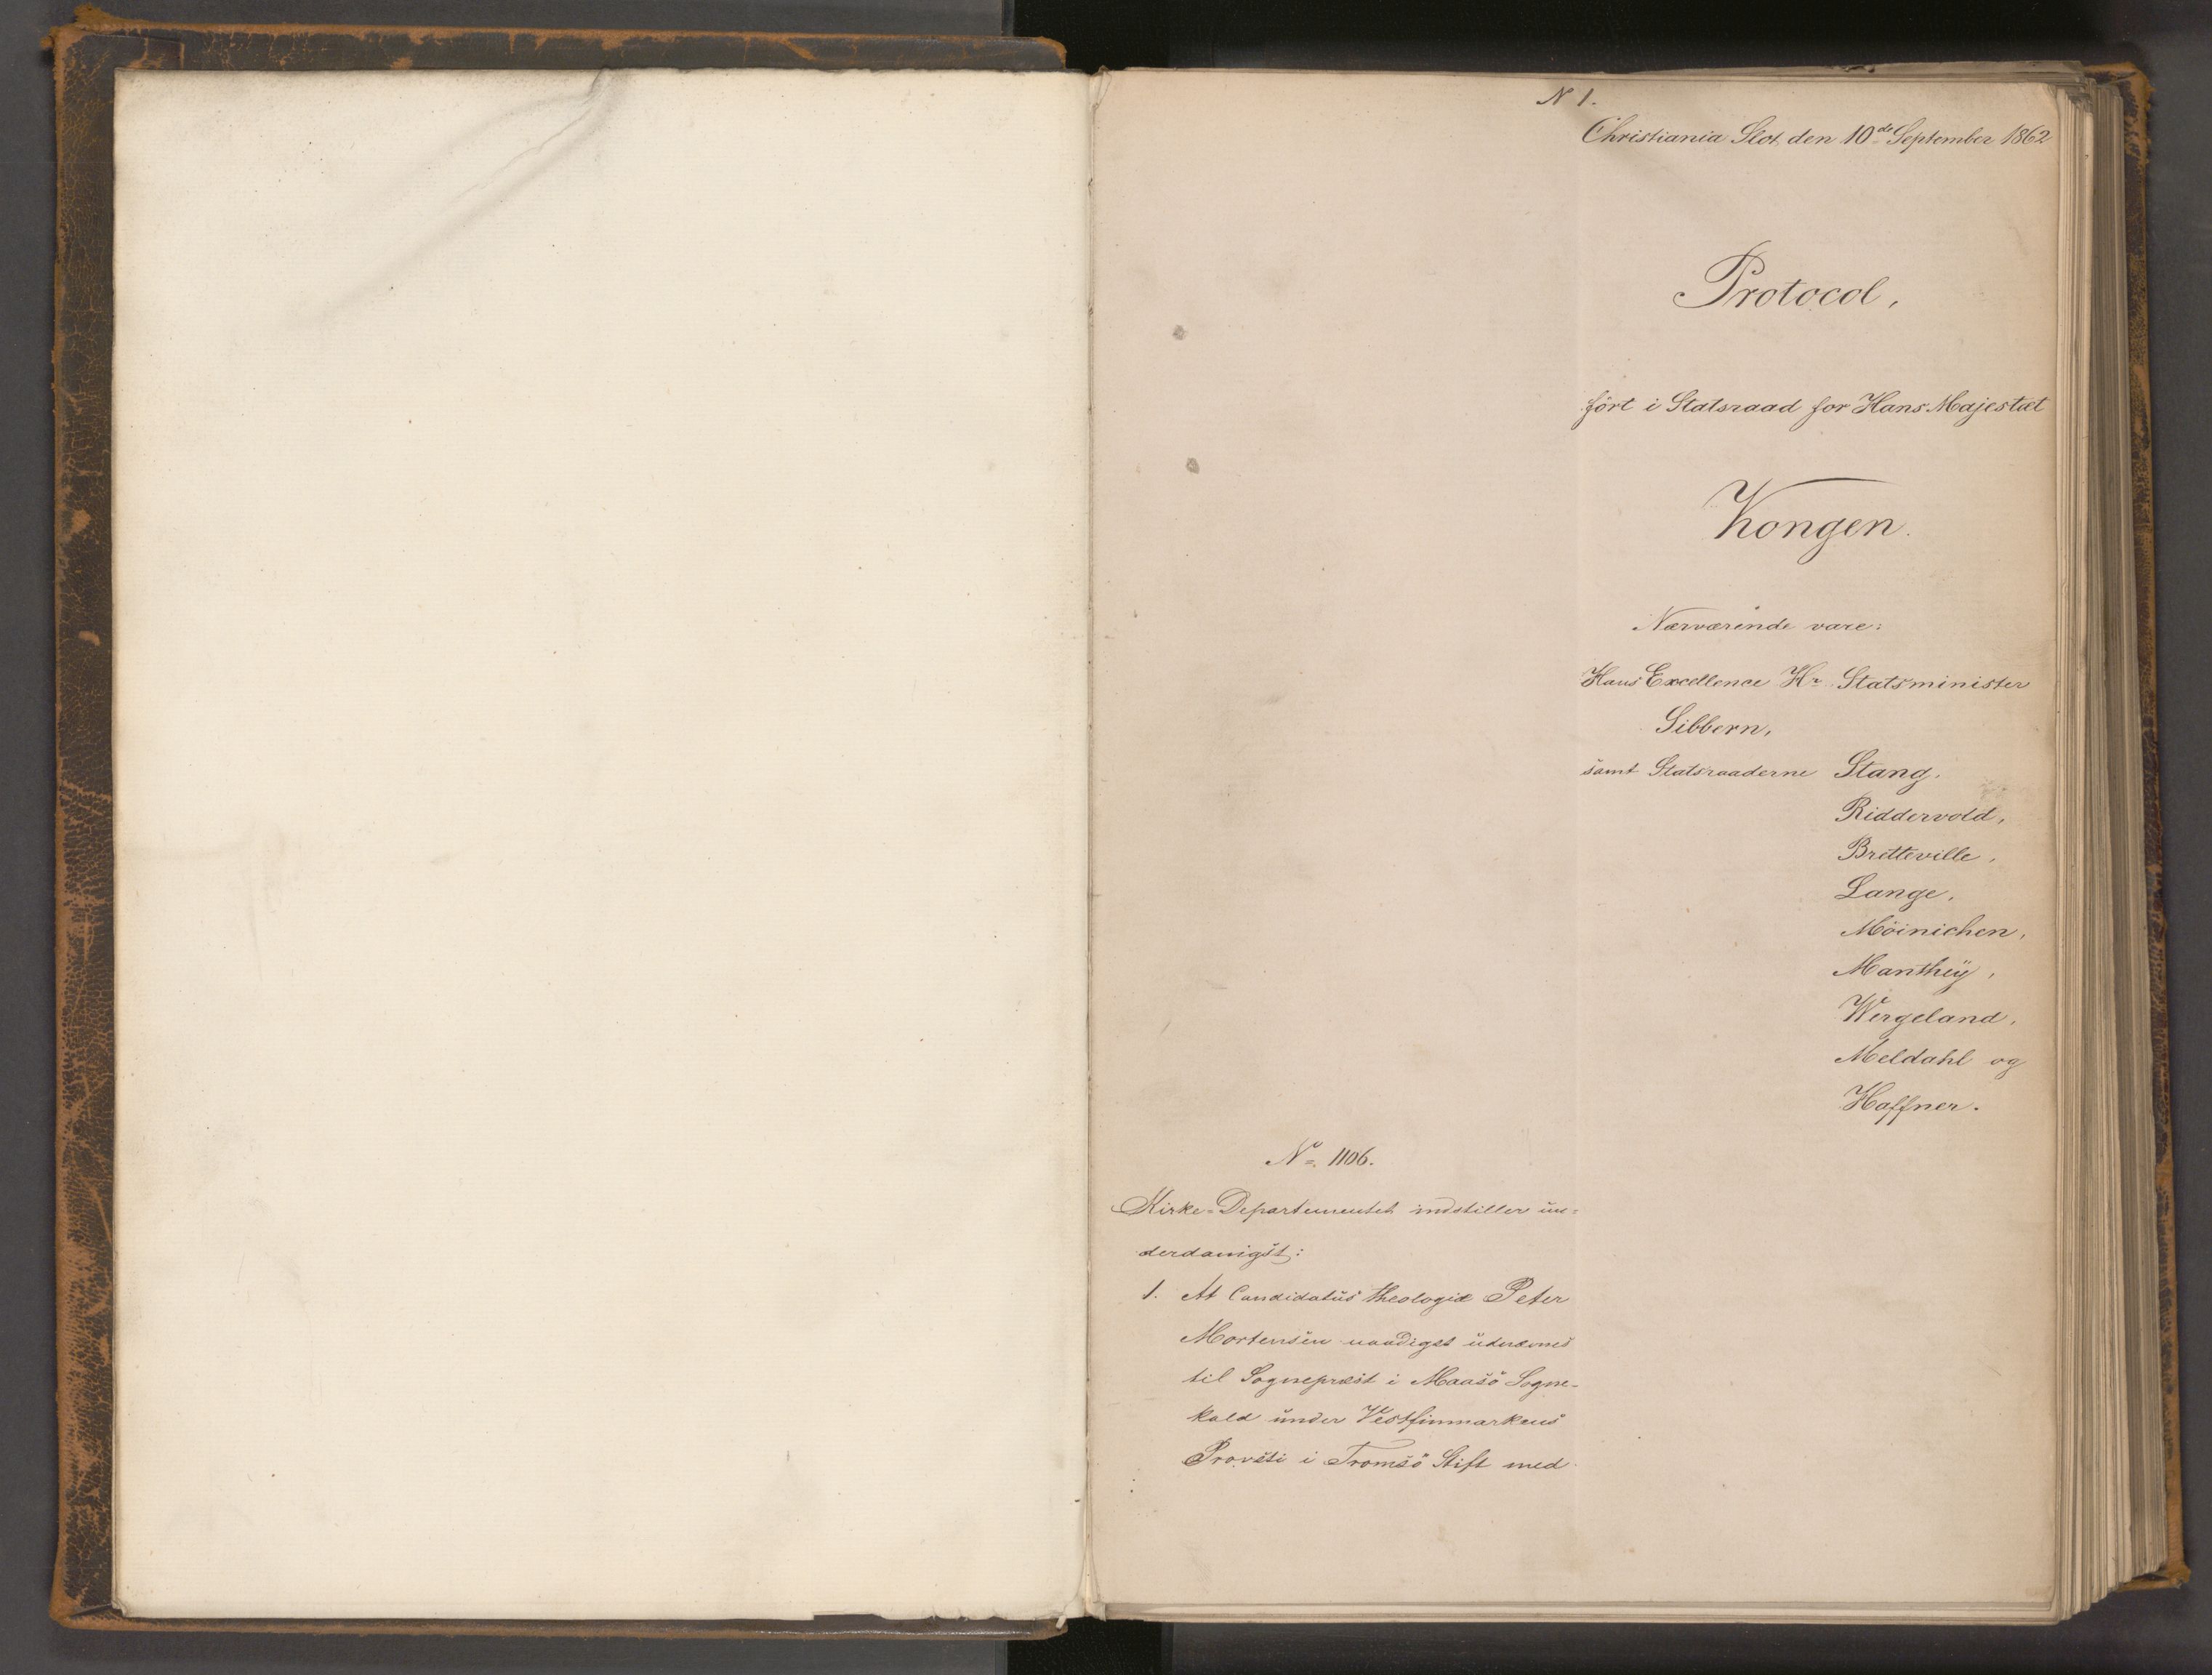 N 1.
Christiania Slot den 10de September 1862
Protocol,
ført i Statsraad for Hans Majestæt
Kongen.
Nærværende vare:
Hans Excellence Hr. Statsminister
Sibbern,
samt Statsraaderne Stang,
Riddervold,
Bretteville,
Lange,
Möinichen,
Manthey,
Wergeland,
Meldahl og
Haffner.
No. 1106.
Kirke-Departementet indstiller un-
derdanigst:
1. At Candidatus theologiæ Peter
Mortensen naadigst udnævnes
til Sognepræst i Maasö Sogne-
kald under Vestfinmarkens
Provsti i Tromsö Stift med